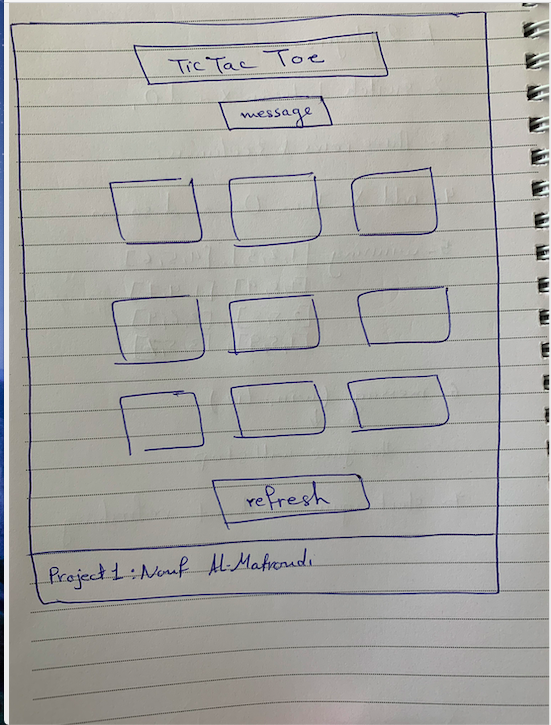 Tic Tac Toe
message
refresh
Project 1 : Nouf Al-Matroudi